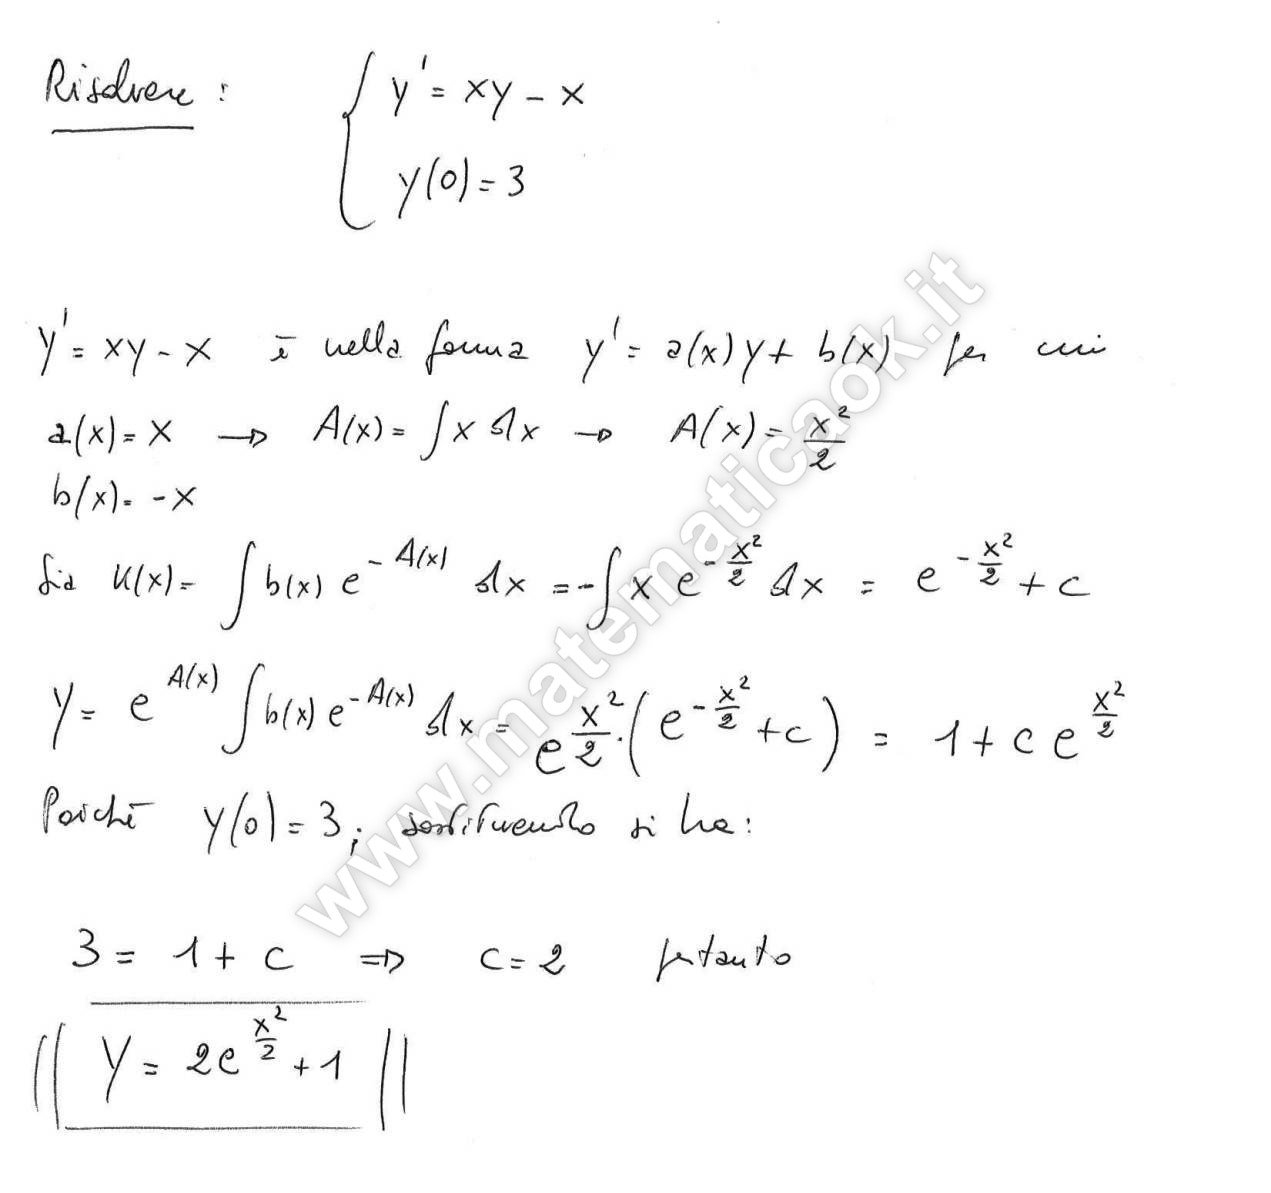 Risolvere : { y' = xy - x
y(0) = 3
y' = xy - x è nella forma y' = a(x)y + b(x) per cui
a(x) = x → A(x) = ∫ x dx → A(x) = x²/2
b(x) = -x
Sia u(x) = ∫ b(x) e^(-A(x)) dx = -∫ x e^(-x²/2) dx = e^(-x²/2) + c
y = e^(A(x)) ∫ b(x) e^(-A(x)) dx = e^(x²/2) · (e^(-x²/2) + c) = 1 + c e^(x²/2)
Poiché y(0) = 3; sostituendo si ha:
3 = 1 + c ⇒ c = 2 pertanto
y = 2e^(x²/2) + 1
www.matematicaok.it